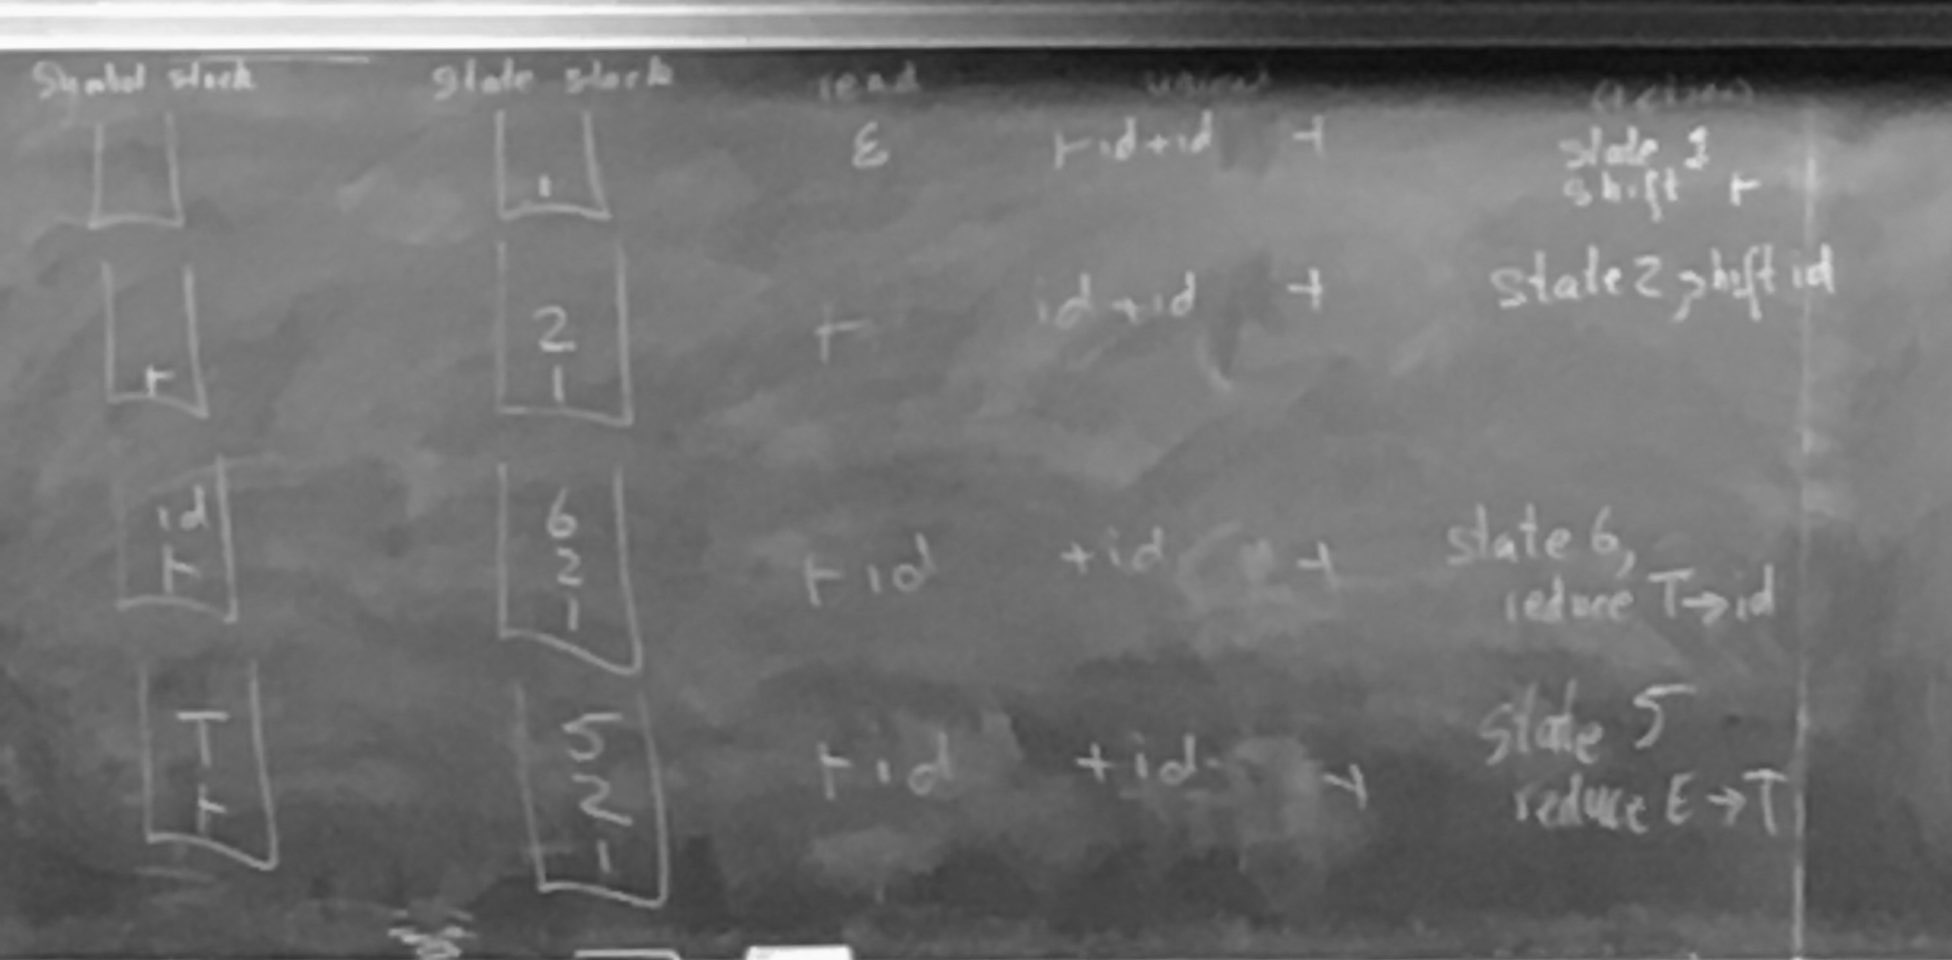 Symbol stack state stack read unread (action)
1 ε ⊢ id+id ⊣ state 1
shift ⊢
⊢ 2 1 ⊢ id+id ⊣ state 2, shift id
id ⊢ 6 2 1 ⊢ id +id ⊣ state 6,
reduce T→id
T ⊢ 5 2 1 ⊢ id +id ⊣ state 5
reduce E→T